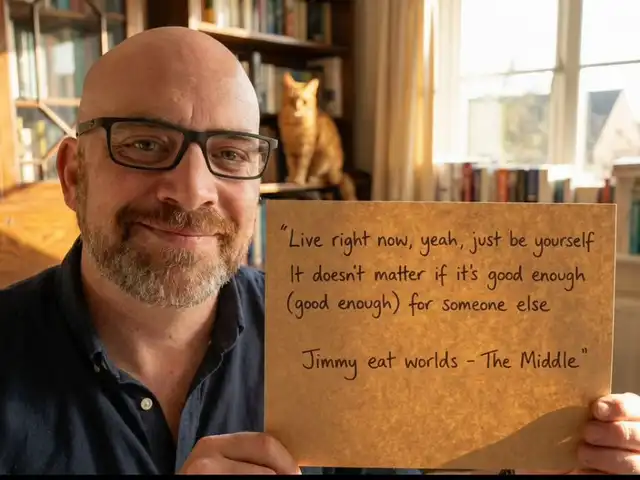 "Live right now, yeah, just be yourself
It doesn't matter if it's good enough
(good enough) for someone else
Jimmy eat worlds - The Middle"